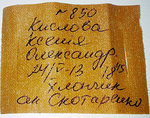 ~ 850
Кислова
Ксенія
Олександр
24/V-13 18⁴⁵
Хлопчик
ак. Скотаренко